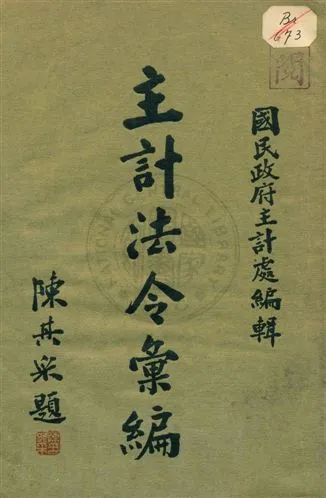 國民政府主計處編輯
主計法令彙編
陳其采題
Br
673
閱